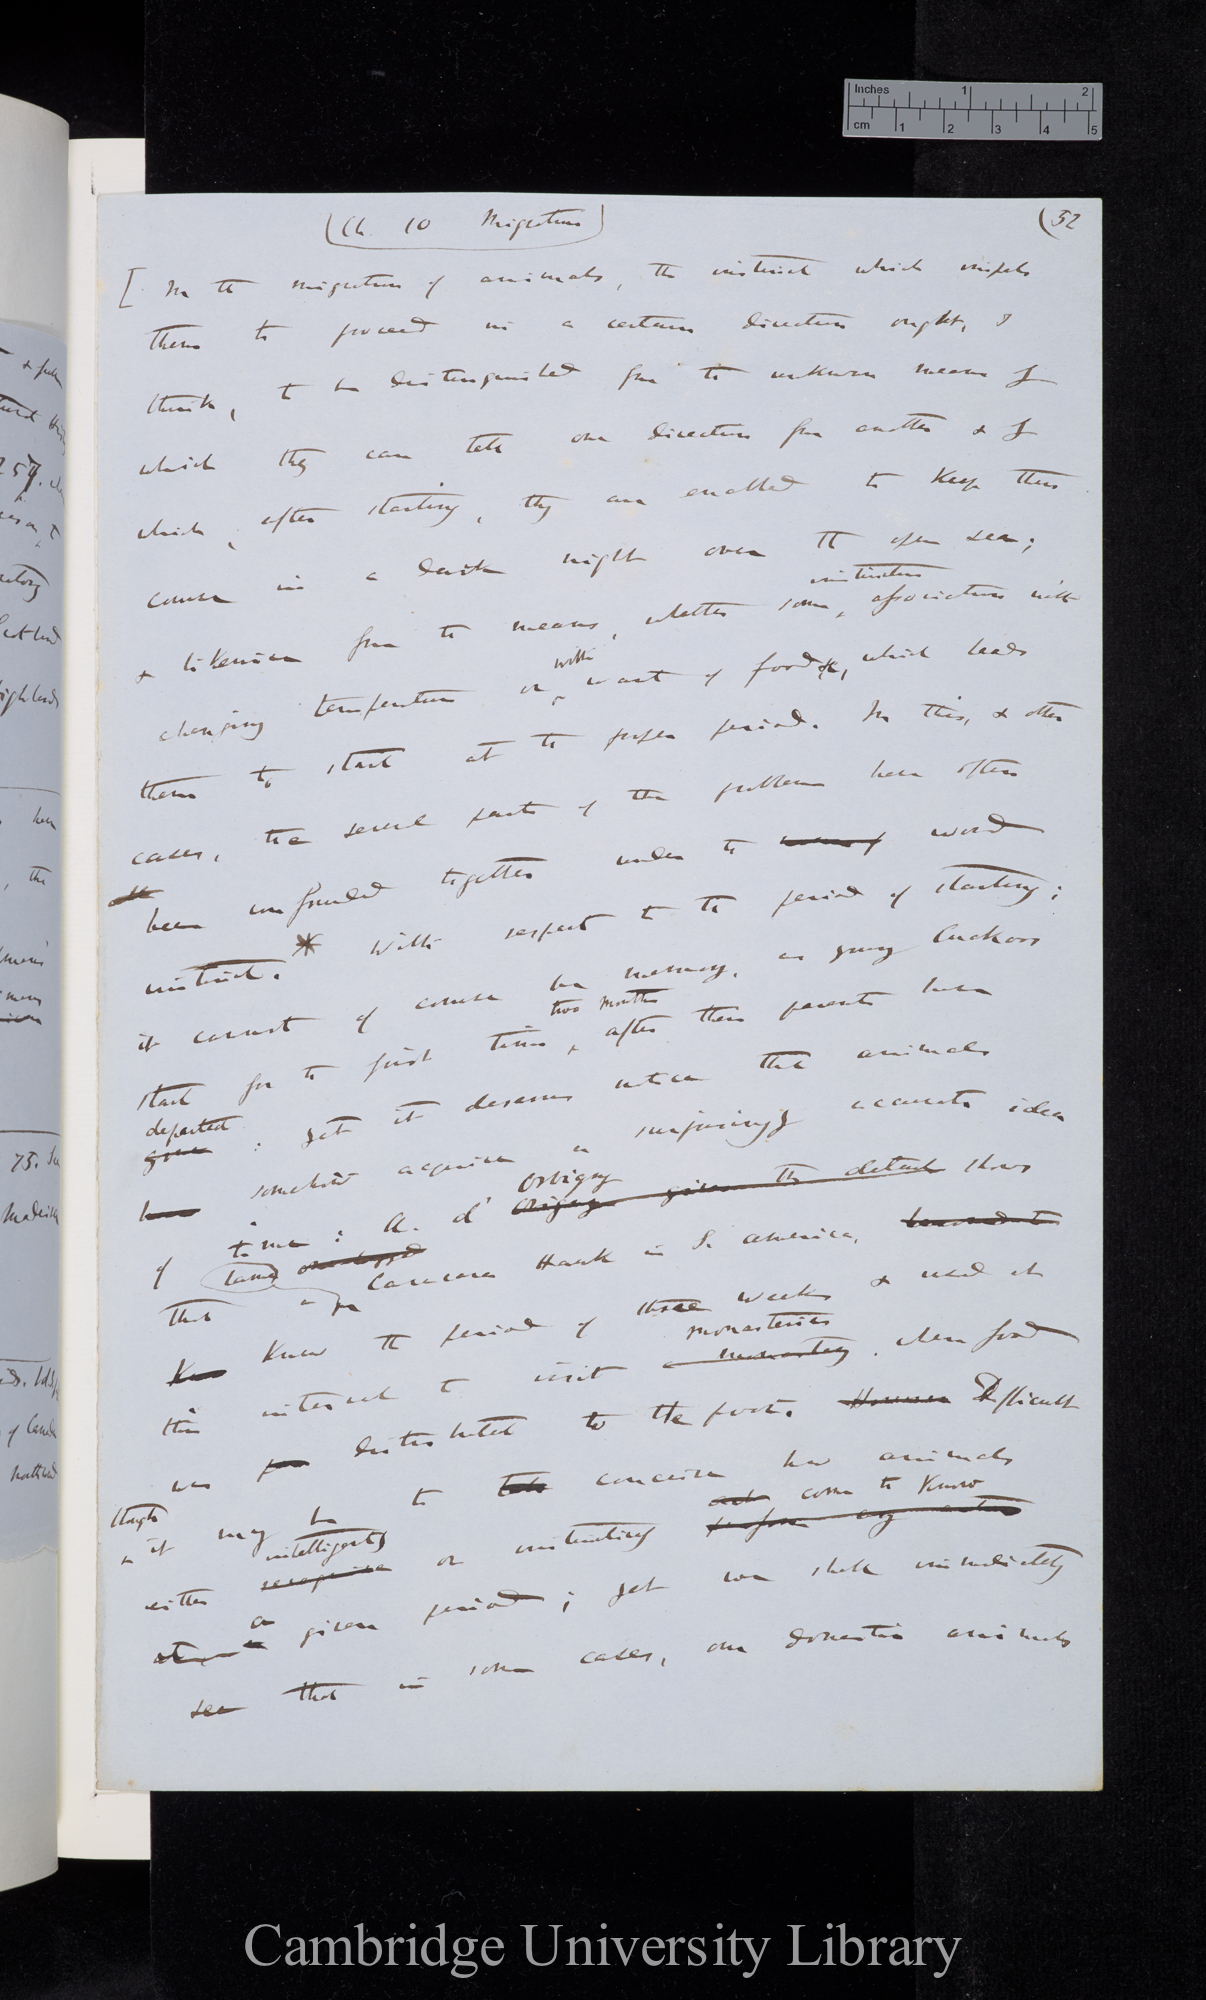 (Ch. 10 Migration)
(52
[In the migration of animals, the instinct which impels
them to proceed in a certain direction ought, I
think, to be distinguished from the unknown means by
which they can tell one direction from another & by
which, after starting, they are enabled to keep their
course in a dark night over the open sea;
instinctive
& likewise from the means, whether some association with
with
changing temperature or want of food &c, which leads
them to start at the proper period. In this, & other
cases, the several parts of the problem have often
been confounded together under the word
instinct. * With respect to the period of starting;
it cannot of course be memory, as young Cuckoos
two months
start for the first time after their parents have
departed
gone : yet it deserves notice that animals
have somehow acquire a surprisingly accurate idea
Orbigny
of time : A. d' given the details shows
tame
that a Caracara Hawk in S. America,
lame
knew the period of three weeks & used at
monasteries
this interval to visit monastery when food
was distributed to the poor. However Difficult
though
as it may be to conceive how animals
come to know
intelligently
either recognise or instinctively perform any action
a
given period; yet we shall immediately
see that in some cases, our domestic animals
25
75.
Madeira
the
Highlands
Cambridge University Library
Inches 1 2
cm 1 2 3 4 5